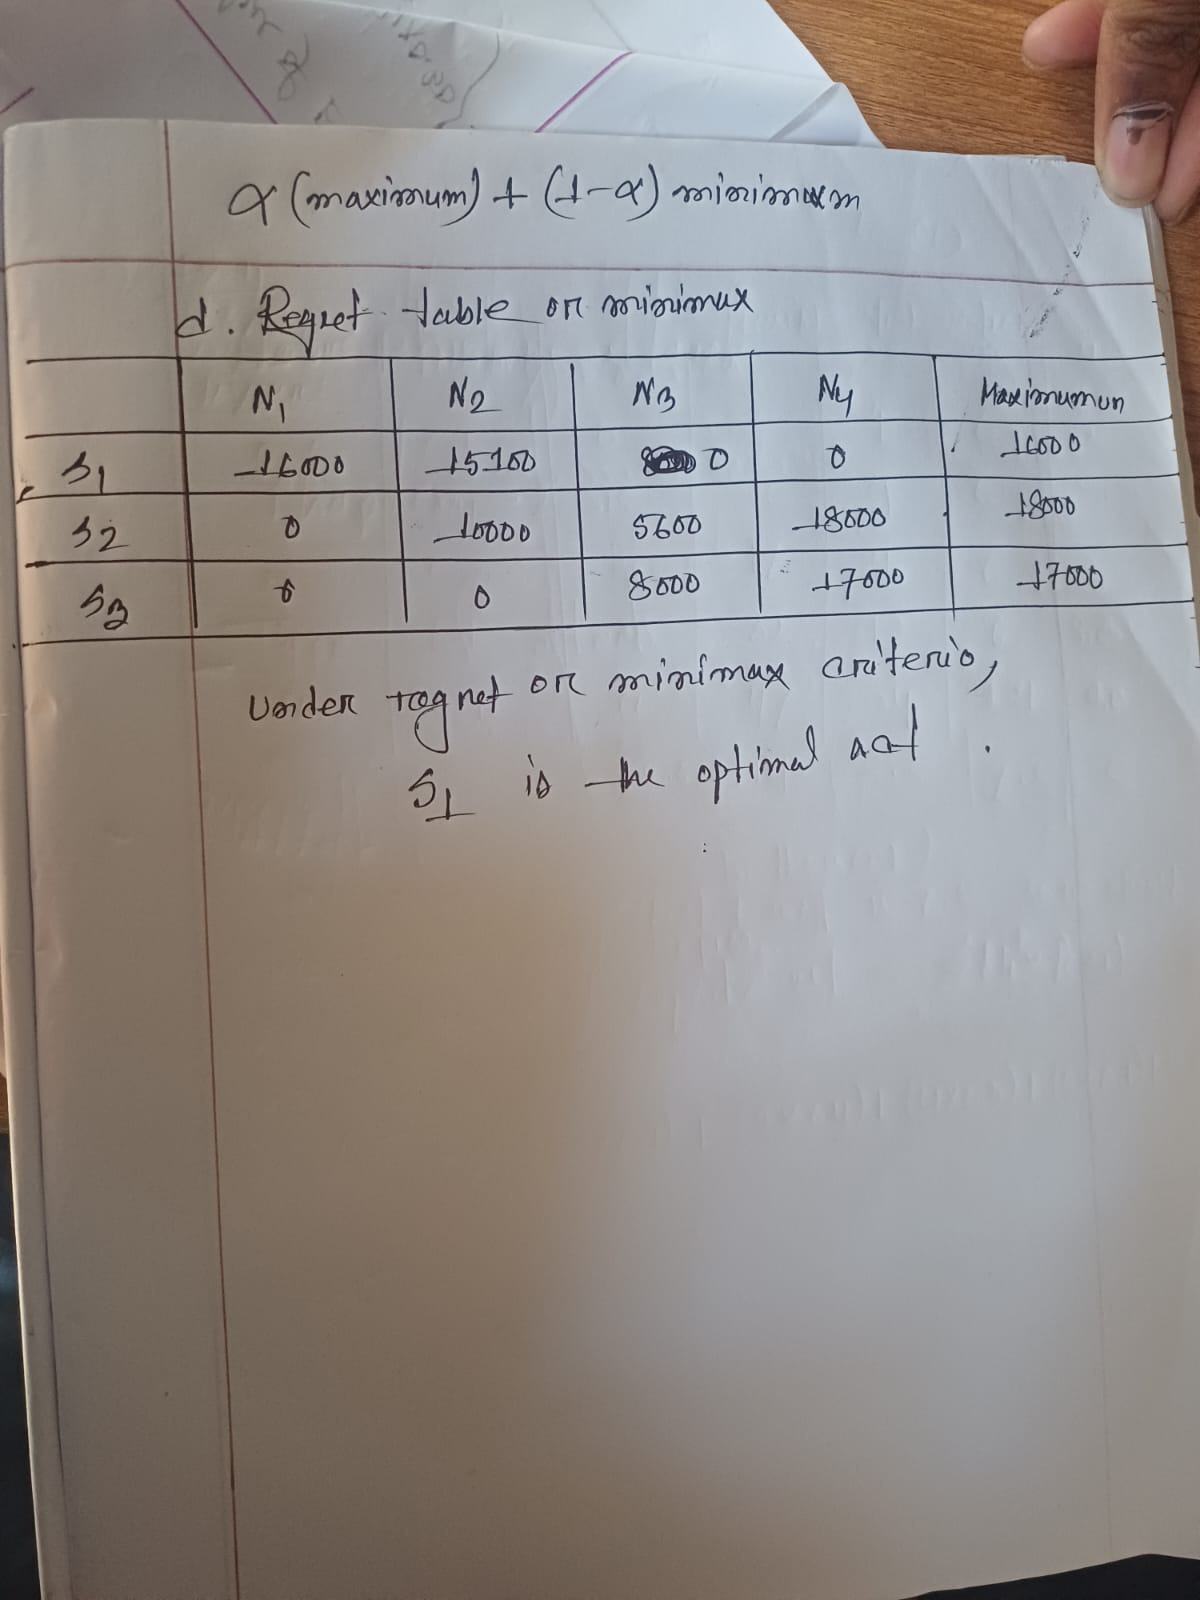 α (maximum) + (1-α) minimum
d. Regret table or minimax
N1 N2 N3 N4 Maximumun
S1 16000 15100 0 0 16000
S2 0 10000 5600 18000 18000
S3 0 0 8000 17000 17000
Under regret or minimax criterio,
S1 is the optimal act.